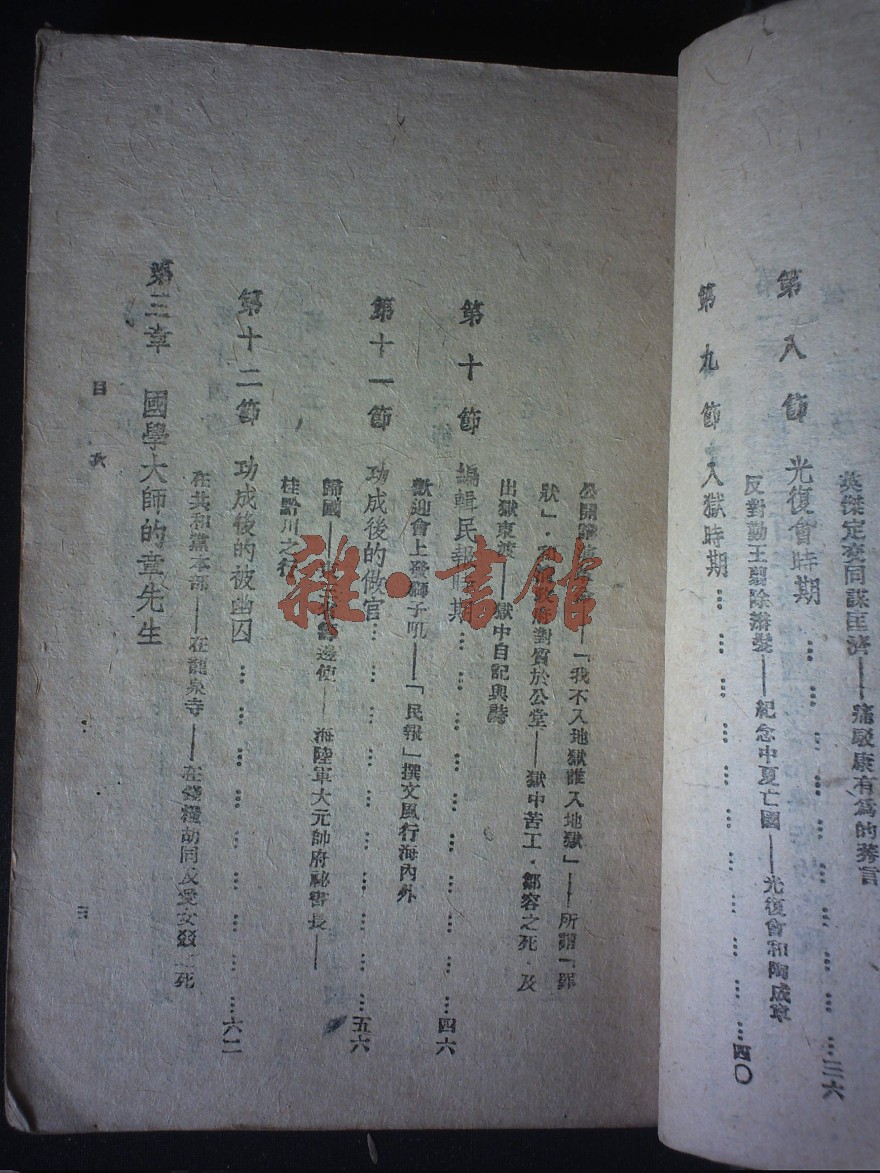 英傑定交同謀匡濟——痛駁康有為的莠言
第八節　光復會時期…………三六
反對勤王翦除辮髮——紀念中夏亡國——光復會和陶成章
第九節　入獄時期…………四〇
公開——「我不入地獄誰入地獄」——所謂「罪
狀」·對質於公堂——獄中苦工·鄒容之死·及
出獄東渡——獄中自記與詩
第十節　編輯民報時期…………四六
歡迎會上發獅子吼——「民報」撰文風行海內外
第十一節　功成後的做官…………五六
歸國——籌邊使——海陸軍大元帥府祕書長——
桂黔川之行
第十二節　功成後的被幽囚…………六二
在共和黨本部——在龍泉寺——在錢糧胡同及愛女㸚之死
第三章　國學大師的章先生
目次
三
雜·書館